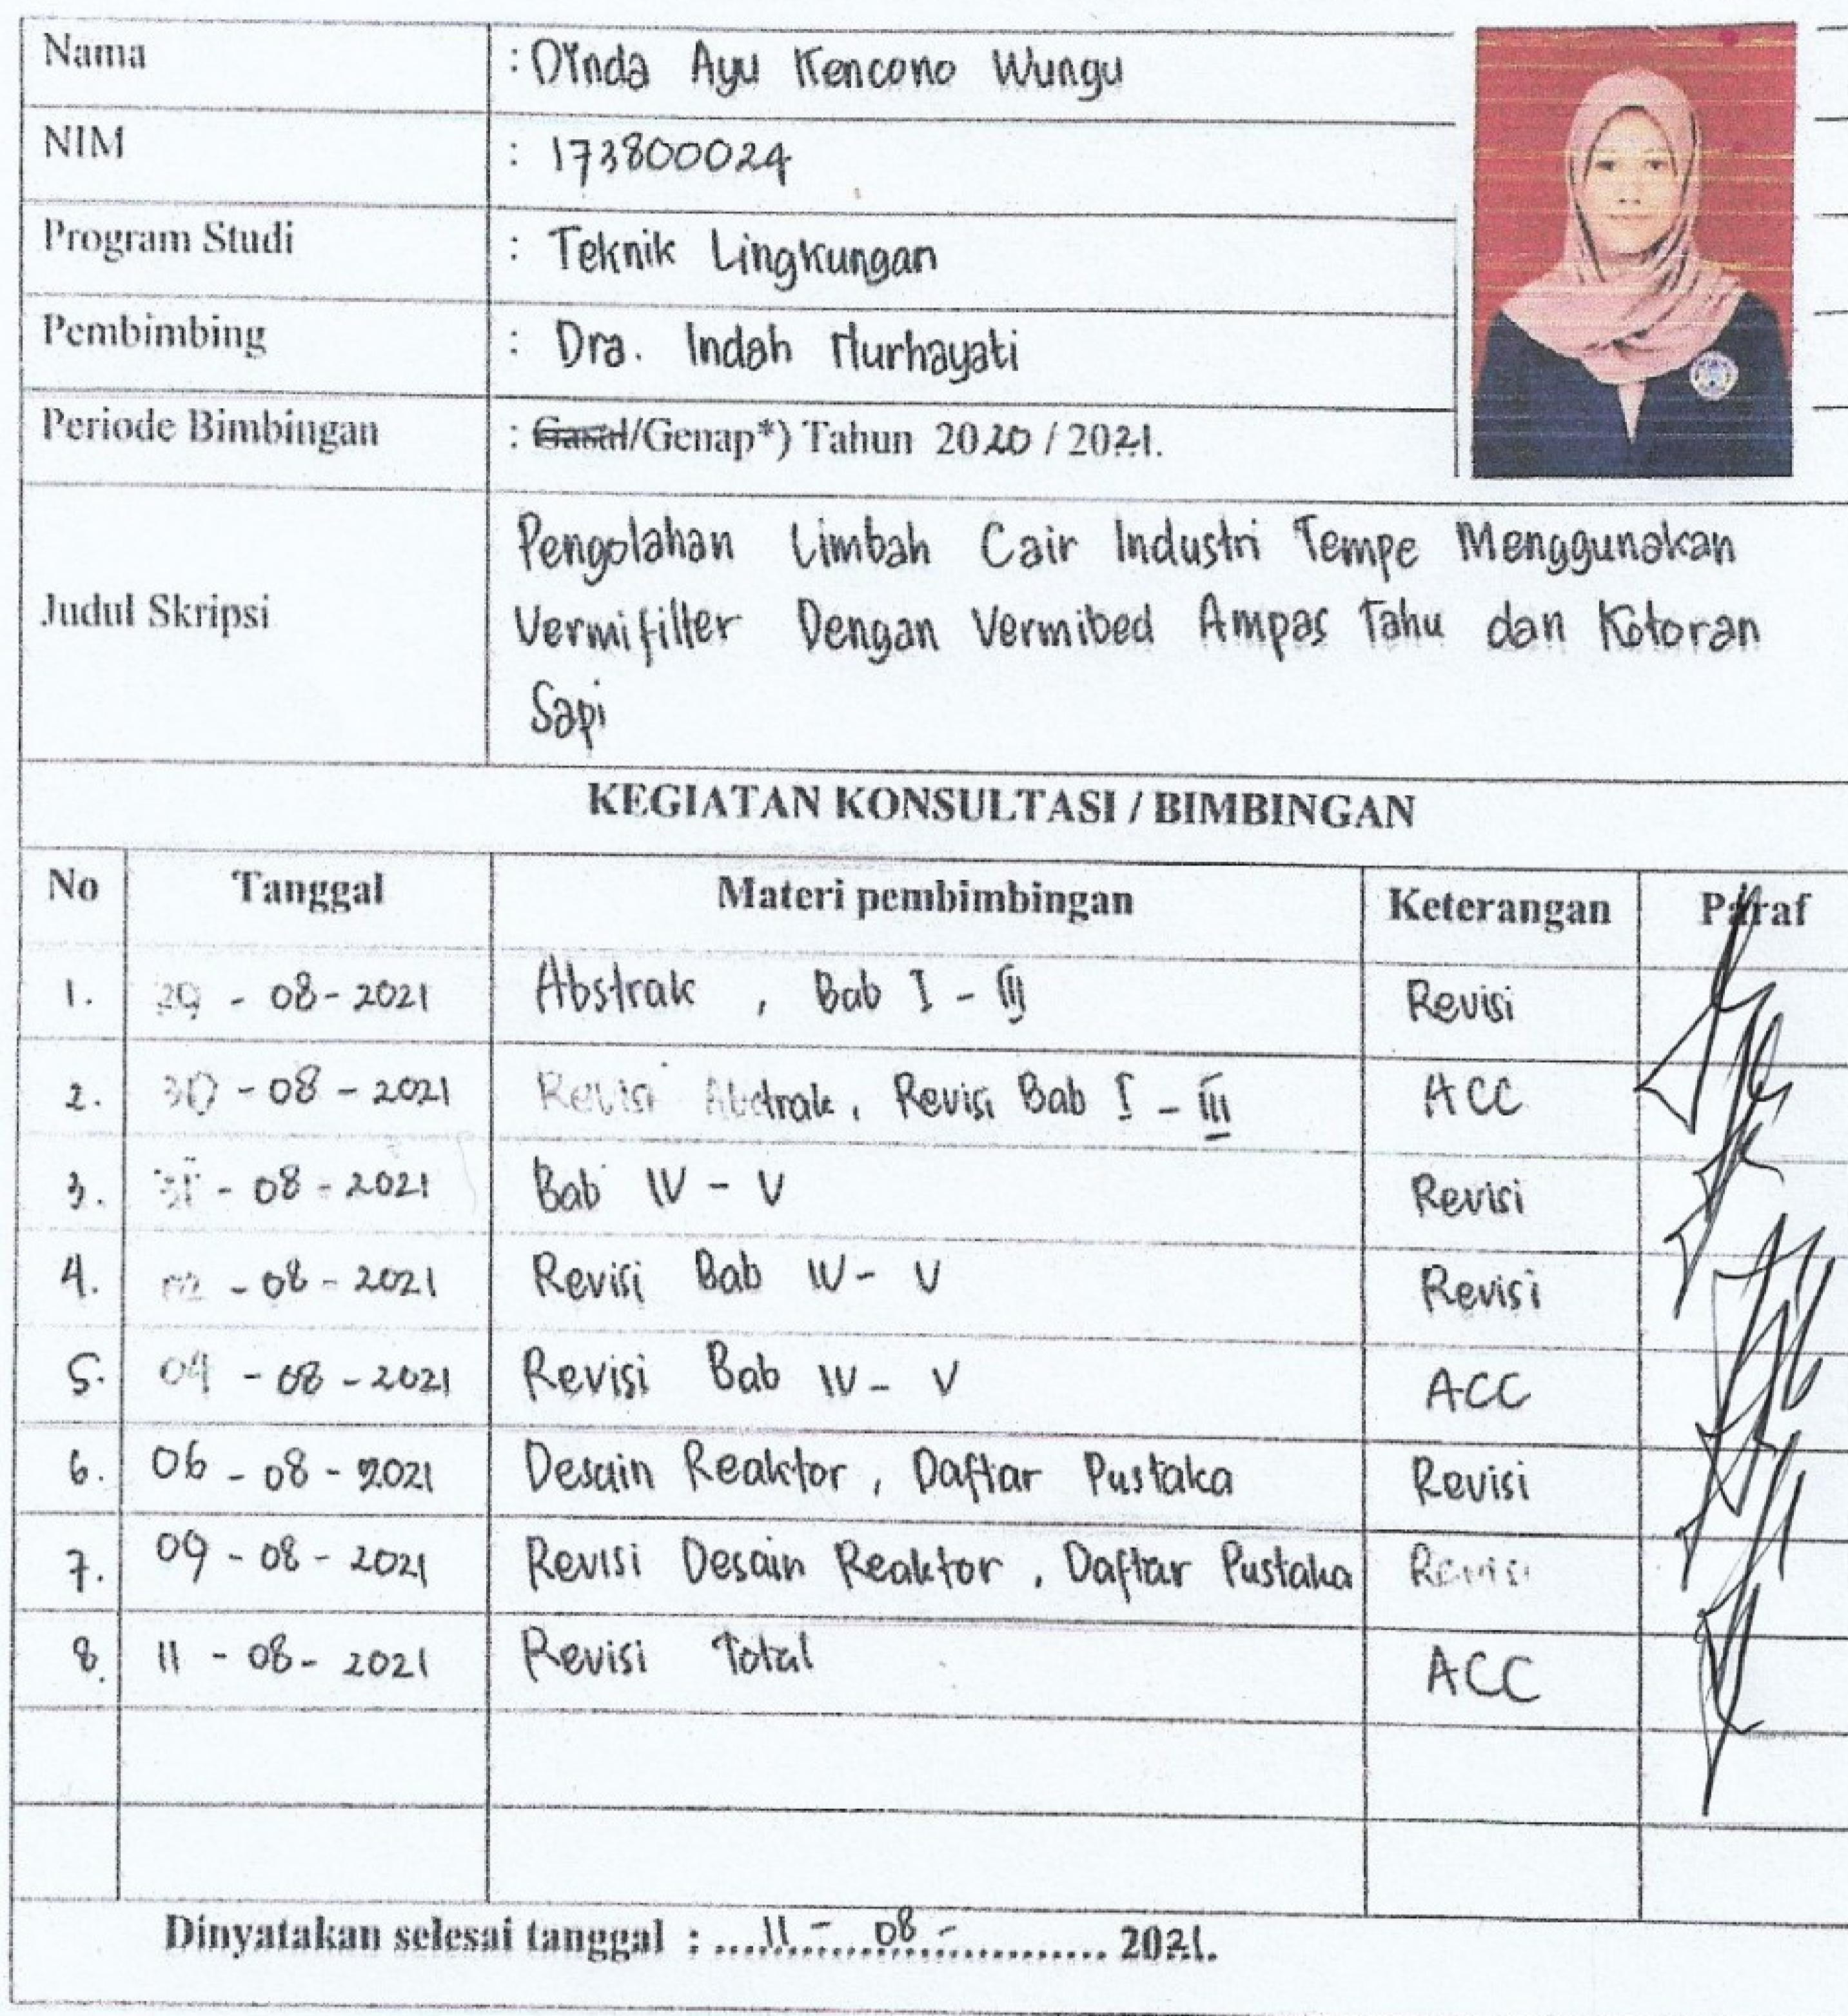 Nama : Dinda Ayu Kencono Wungu
NIM : 173800024
Program Studi : Teknik Lingkungan
Pembimbing : Dra. Indah Nurhayati
Periode Bimbingan : Gasal/Genap*) Tahun 2020 / 2021.
Judul Skripsi
Pengolahan Limbah Cair Industri Tempe Menggunakan
Vermifilter Dengan Vermibed Ampas Tahu dan Kotoran
Sapi
KEGIATAN KONSULTASI / BIMBINGAN
No Tanggal Materi pembimbingan Keterangan Paraf
1. 29 - 08 - 2021 Abstrak , Bab I - III Revisi
2. 30 - 08 - 2021 Revisi Abstrak, Revisi Bab I - III ACC
3. 31 - 08 - 2021 Bab IV - V Revisi
4. - 08 - 2021 Revisi Bab IV - V Revisi
5. 04 - 08 - 2021 Revisi Bab IV - V ACC
6. 06 - 08 - 2021 Desain Reaktor , Daftar Pustaka Revisi
7. 09 - 08 - 2021 Revisi Desain Reaktor , Daftar Pustaka Revisi
8. 11 - 08 - 2021 Revisi Total ACC
Dinyatakan selesai tanggal : .... 11 - 08 - .... 2021.